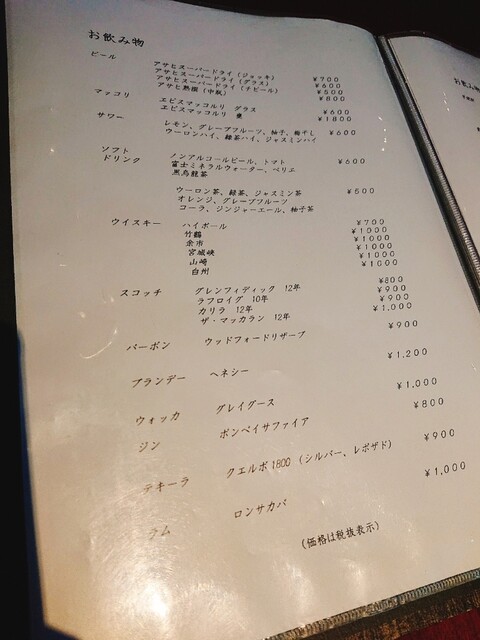 お飲み物
ビール
アサヒスーパードライ（ジョッキ） ¥700
アサヒスーパードライ（グラス） ¥600
アサヒスーパードライ（チビール） ¥500
アサヒ熟撰（中瓶） ¥800
マッコリ
エビスマッコルリ グラス ¥600
エビスマッコルリ 壷 ¥1800
サワー
レモン、グレープフルーツ、柚子、梅干し ¥600
ウーロンハイ、緑茶ハイ、ジャスミンハイ
ソフト
ドリンク ノンアルコールビール、トマト ¥600
富士ミネラルウォーター、ペリエ
黒烏龍茶
ウーロン茶、緑茶、ジャスミン茶 ¥500
オレンジ、グレープフルーツ
コーラ、ジンジャーエール、柚子茶
ウイスキー ハイボール ¥700
竹鶴 ¥1000
余市 ¥1000
宮城峡 ¥1000
山崎 ¥1000
白州 ¥1000
スコッチ グレンフィディック 12年 ¥800
ラフロイグ 10年 ¥900
カリラ 12年 ¥900
ザ・マッカラン 12年 ¥1,000
バーボン ウッドフォードリザーブ ¥900
ブランデー ヘネシー ¥1,200
ウォッカ グレイグース ¥1,000
ジン ボンベイサファイア ¥800
テキーラ クエルボ1800（シルバー、レポサド） ¥900
ラム ロンサカパ ¥1,000
（価格は税抜表示）
お飲み物